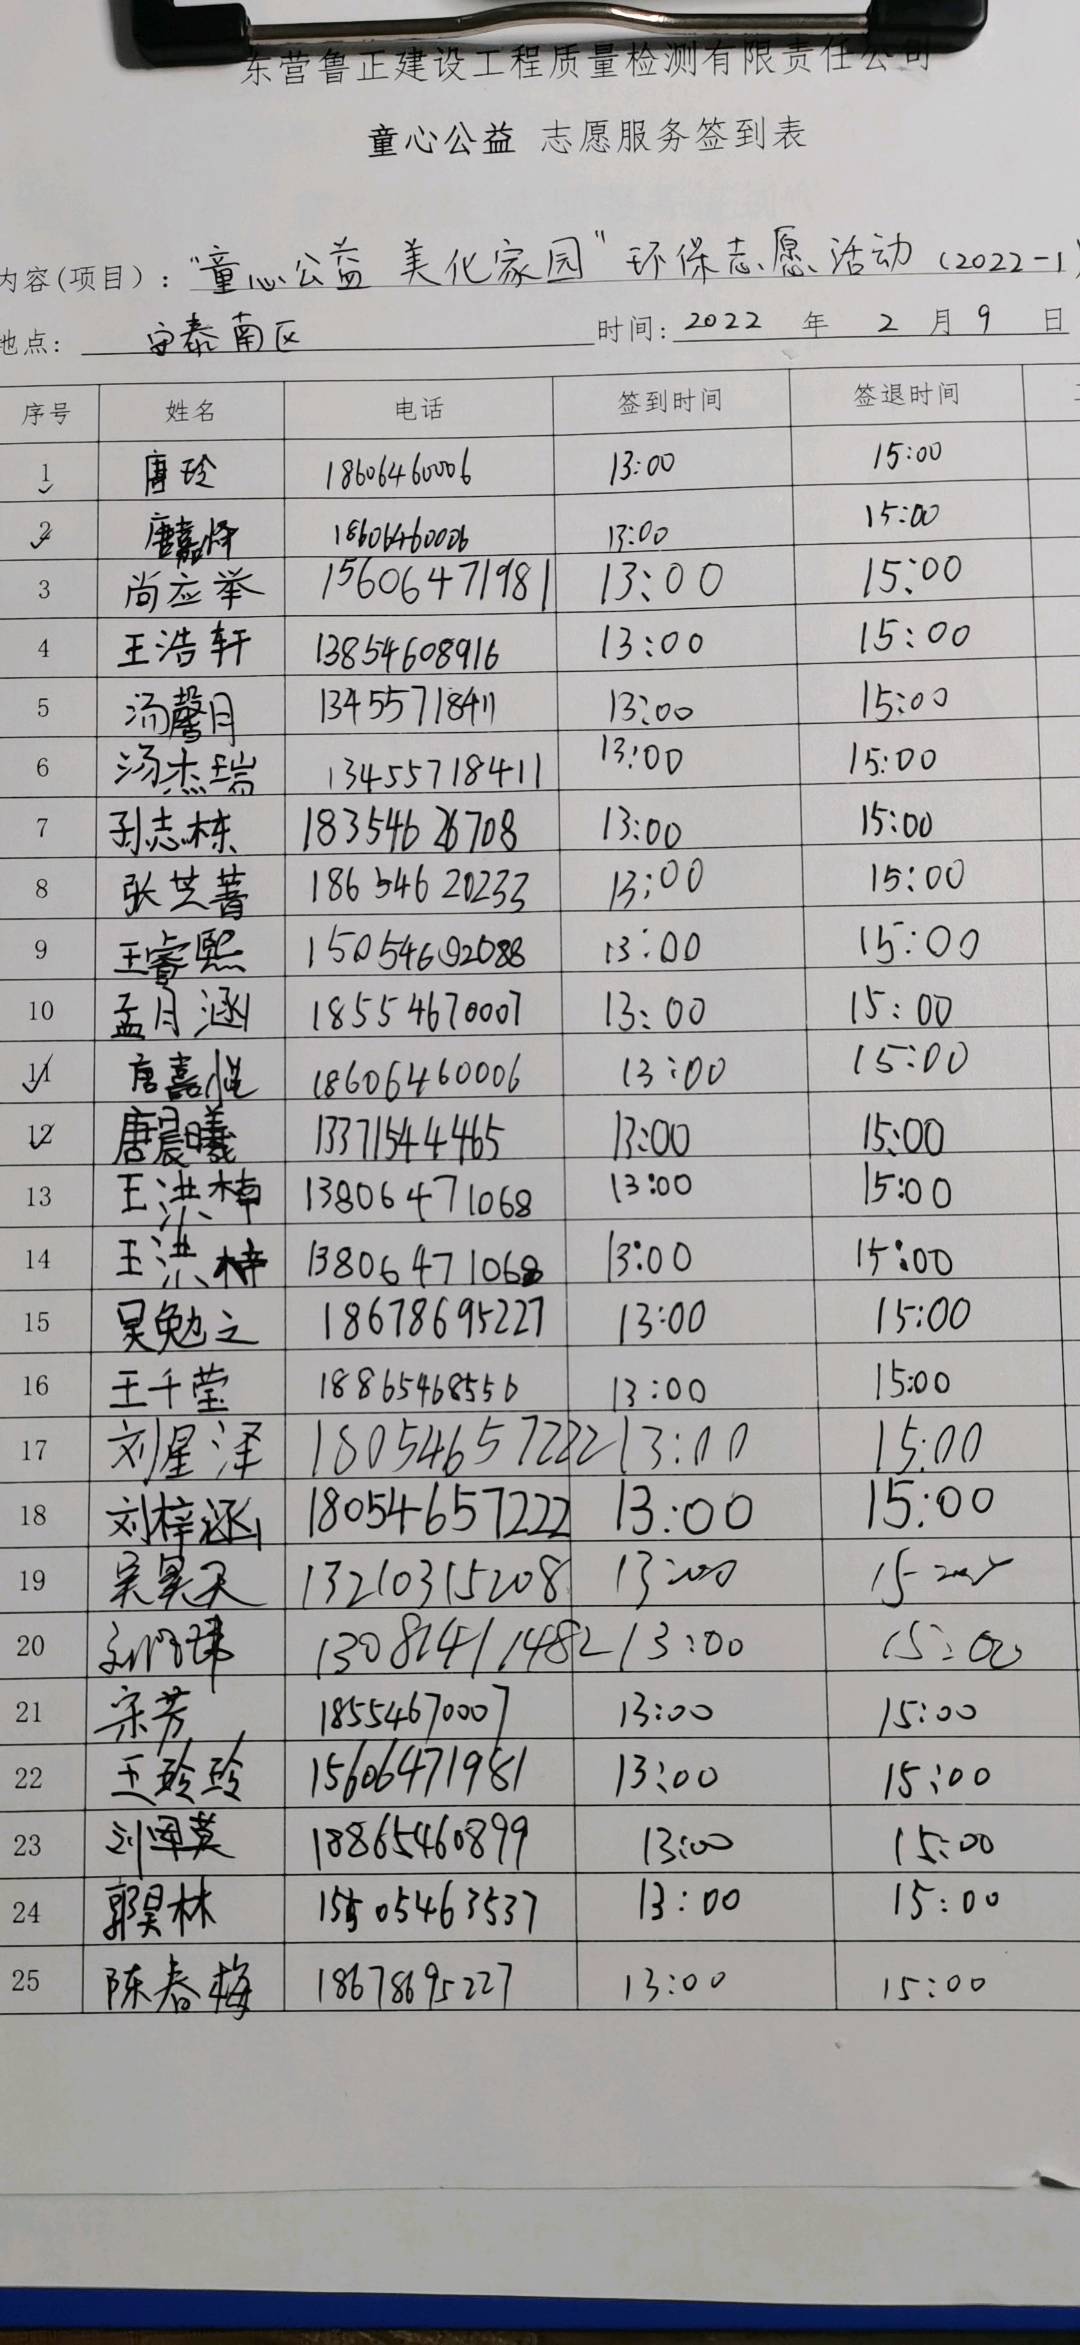 东营鲁正建设工程质量检测有限责任公司
童心公益 志愿服务签到表
内容(项目)："童心公益 美化家园"环保志愿活动(2022-1)
地点： 安泰南区 时间：2022 年 2 月 9 日
序号 姓名 电话 签到时间 签退时间
1 唐玲 18606460006 13:00 15:00
2 唐嘉怿 18606460006 13:00 15:00
3 尚应举 15606471981 13:00 15:00
4 王浩轩 13854608916 13:00 15:00
5 汤馨月 13455718411 13:00 15:00
6 汤杰瑞 13455718411 13:00 15:00
7 孙志栋 18354626708 13:00 15:00
8 张芸菁 18654620233 13:00 15:00
9 王睿熙 15054692088 13:00 15:00
10 孟月涵 18554670007 13:00 15:00
11 唐嘉悦 18606460006 13:00 15:00
12 唐晨曦 13371544465 13:00 15:00
13 王洪楠 13806471068 13:00 15:00
14 王洪梓 13806471068 13:00 15:00
15 吴勉之 18678695227 13:00 15:00
16 王千莹 18865468556 13:00 15:00
17 刘星泽 18054657222 13:00 15:00
18 刘梓涵 18054657222 13:00 15:00
19 吴昊天 13210315208 13:00
20 13081411482 13:00 15:00
21 宋芳 18554670007 13:00 15:00
22 王玲玲 15606471981 13:00 15:00
23 刘军英 18865460899 13:00 15:00
24 郭昊林 15505463537 13:00 15:00
25 陈春梅 18678695227 13:00 15:00